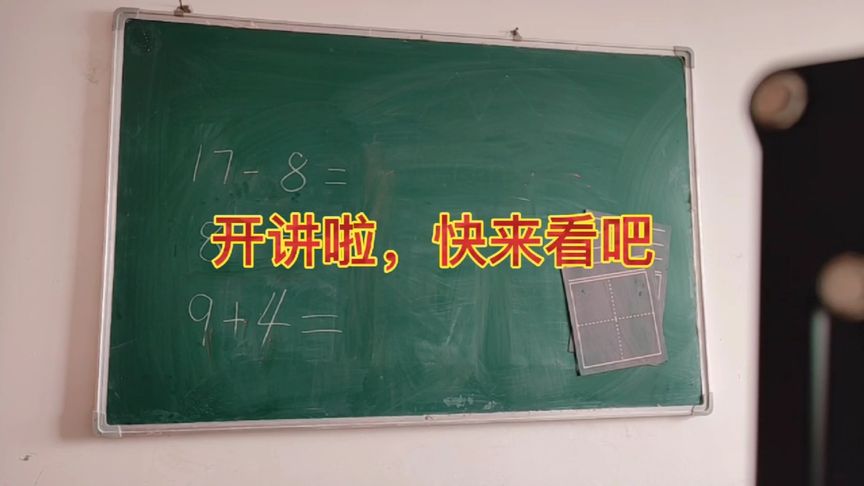 17-8=
8
开讲啦，快来看吧
9+4=